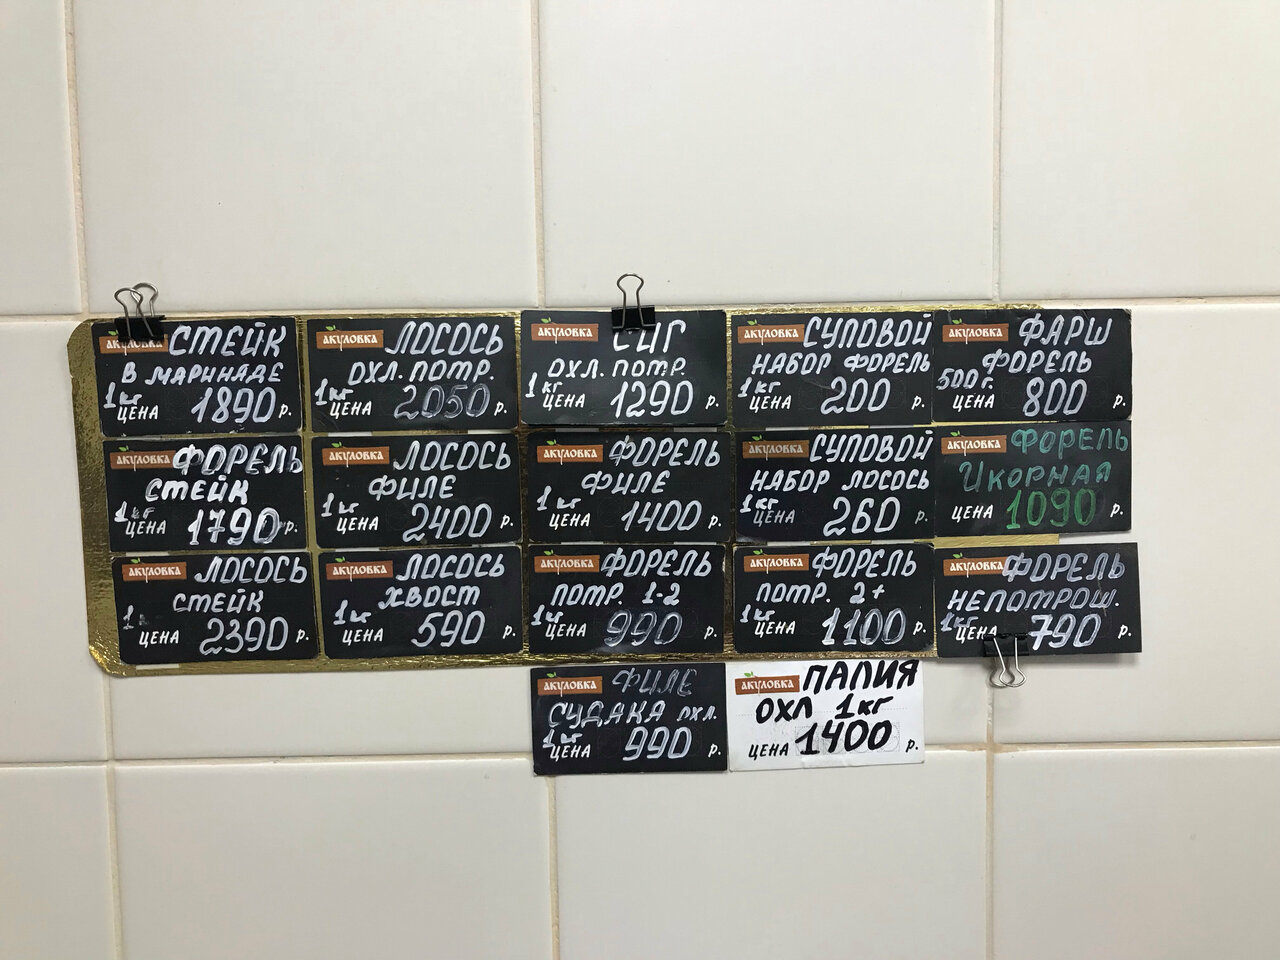 АКУЛОВКА СТЕЙК
В МАРИНАДЕ
1кг
ЦЕНА 1890 р.
АКУЛОВКА ЛОСОСЬ
ОХЛ. ПОТР.
1кг
ЦЕНА 2050 р.
АКУЛОВКА СИГ
ОХЛ. ПОТР.
1кг
ЦЕНА 1290 р.
АКУЛОВКА СУПОВОЙ
НАБОР ФОРЕЛЬ
1кг
ЦЕНА 200 р.
АКУЛОВКА ФАРШ
ФОРЕЛЬ
500г.
ЦЕНА 800 р.
АКУЛОВКА ФОРЕЛЬ
СТЕЙК
1кг
ЦЕНА 1790 р.
АКУЛОВКА ЛОСОСЬ
ФИЛЕ
1кг
ЦЕНА 2400 р.
АКУЛОВКА ФОРЕЛЬ
ФИЛЕ
1кг
ЦЕНА 1400 р.
АКУЛОВКА СУПОВОЙ
НАБОР ЛОСОСЬ
1кг
ЦЕНА 260 р.
АКУЛОВКА ФОРЕЛЬ
ИКОРНАЯ
ЦЕНА 1090 р.
АКУЛОВКА ЛОСОСЬ
СТЕЙК
ЦЕНА 2390 р.
АКУЛОВКА ЛОСОСЬ
ХВОСТ
1кг
ЦЕНА 590 р.
АКУЛОВКА ФОРЕЛЬ
ПОТР. 1-2
1кг
ЦЕНА 990 р.
АКУЛОВКА ФОРЕЛЬ
ПОТР. 2+
1кг
ЦЕНА 1100 р.
АКУЛОВКА ФОРЕЛЬ
НЕПОТРОШ.
1кг
ЦЕНА 790 р.
АКУЛОВКА ФИЛЕ
СУДАКА ОХЛ.
1кг
ЦЕНА 990 р.
АКУЛОВКА ПАЛИЯ
ОХЛ 1кг
ЦЕНА 1400 р.